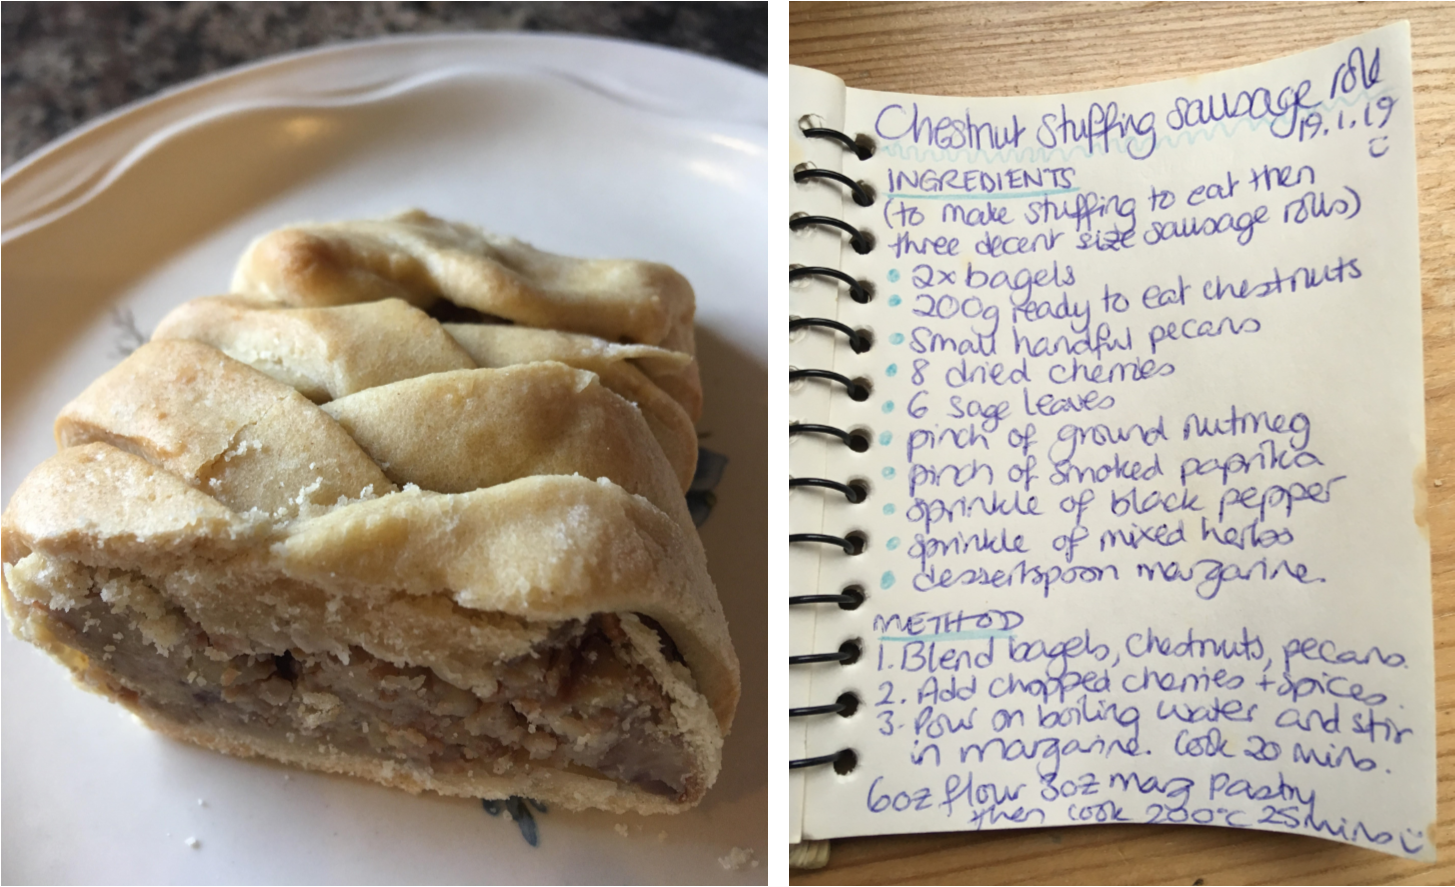 Chestnut stuffing sausage roll
19.1.19
INGREDIENTS
(to make stuffing to eat then
three decent size sausage rolls)
• 2x bagels
• 200g ready to eat chestnuts
• Small handful pecans
• 8 dried cherries
• 6 sage leaves
• pinch of ground nutmeg
• pinch of smoked paprika
• sprinkle of black pepper
• sprinkle of mixed herbs
• dessertspoon margarine.
METHOD
1. Blend bagels, chestnuts, pecans.
2. Add chopped cherries + spices.
3. Pour on boiling water and stir
in margarine. Cook 20 mins.
6oz flour 3oz marg pastry
then cook 200°c 25 mins